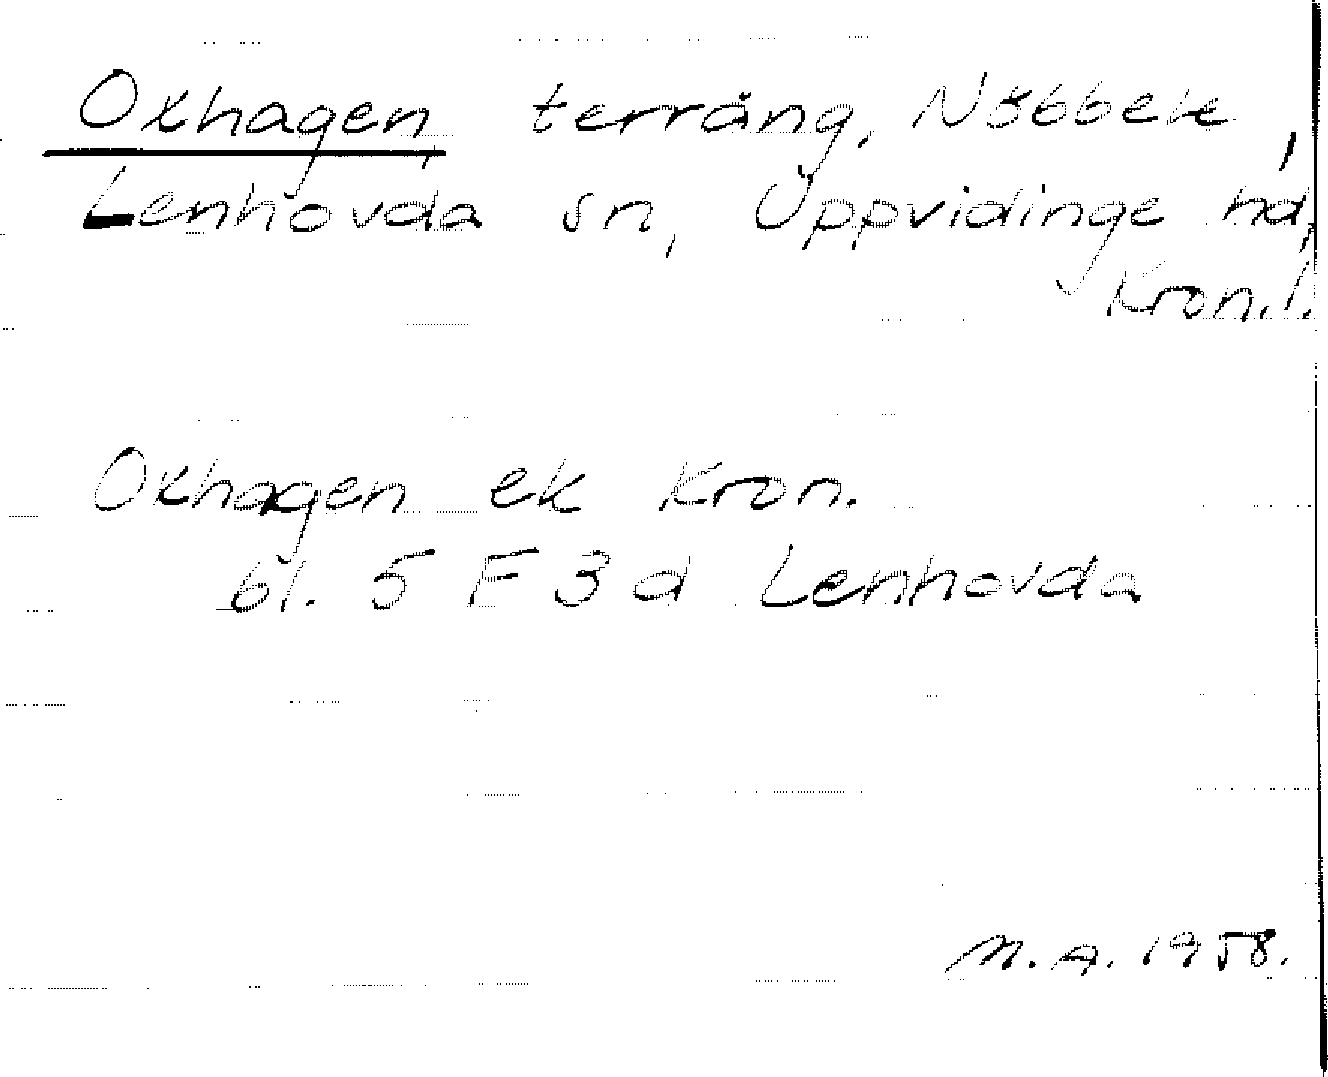 Oxhagen terräng, Nöbbele,
Lenhovda sn, Uppvidinge hd,
Kron.l.
Oxhagen ek Kron.
bl. 5 F 3 d Lenhovda
M.A. 1958.